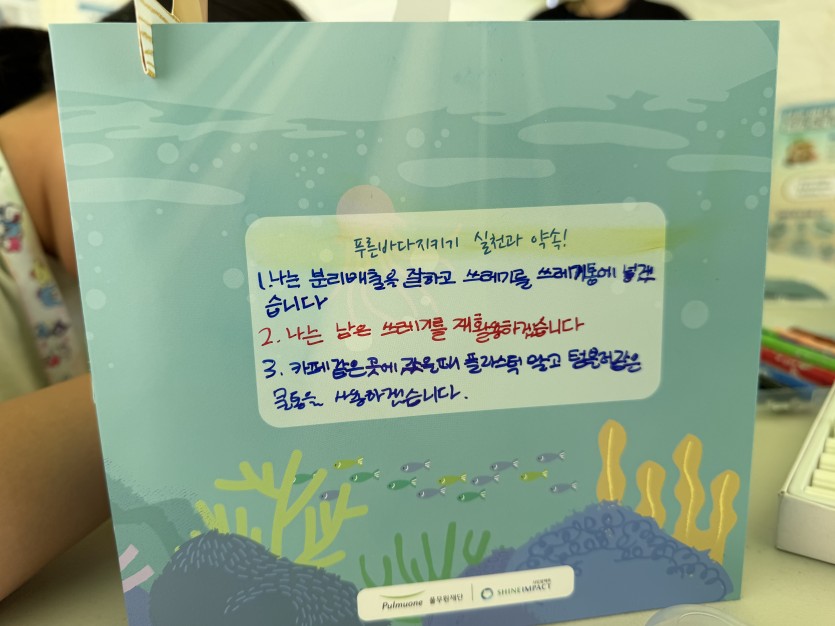 푸른바다지키기 실천과 약속!
1. 나는 분리배출을 잘하고 쓰레기를 쓰레기통에 넣겠
습니다
2. 나는 남은 쓰레기를 재활용하겠습니다
3. 카페같은곳에 갔을때 플라스틱 말고 텀블러같은
물통을 사용하겠습니다.
Pulmuone 풀무원재단 SHINEIMPACT